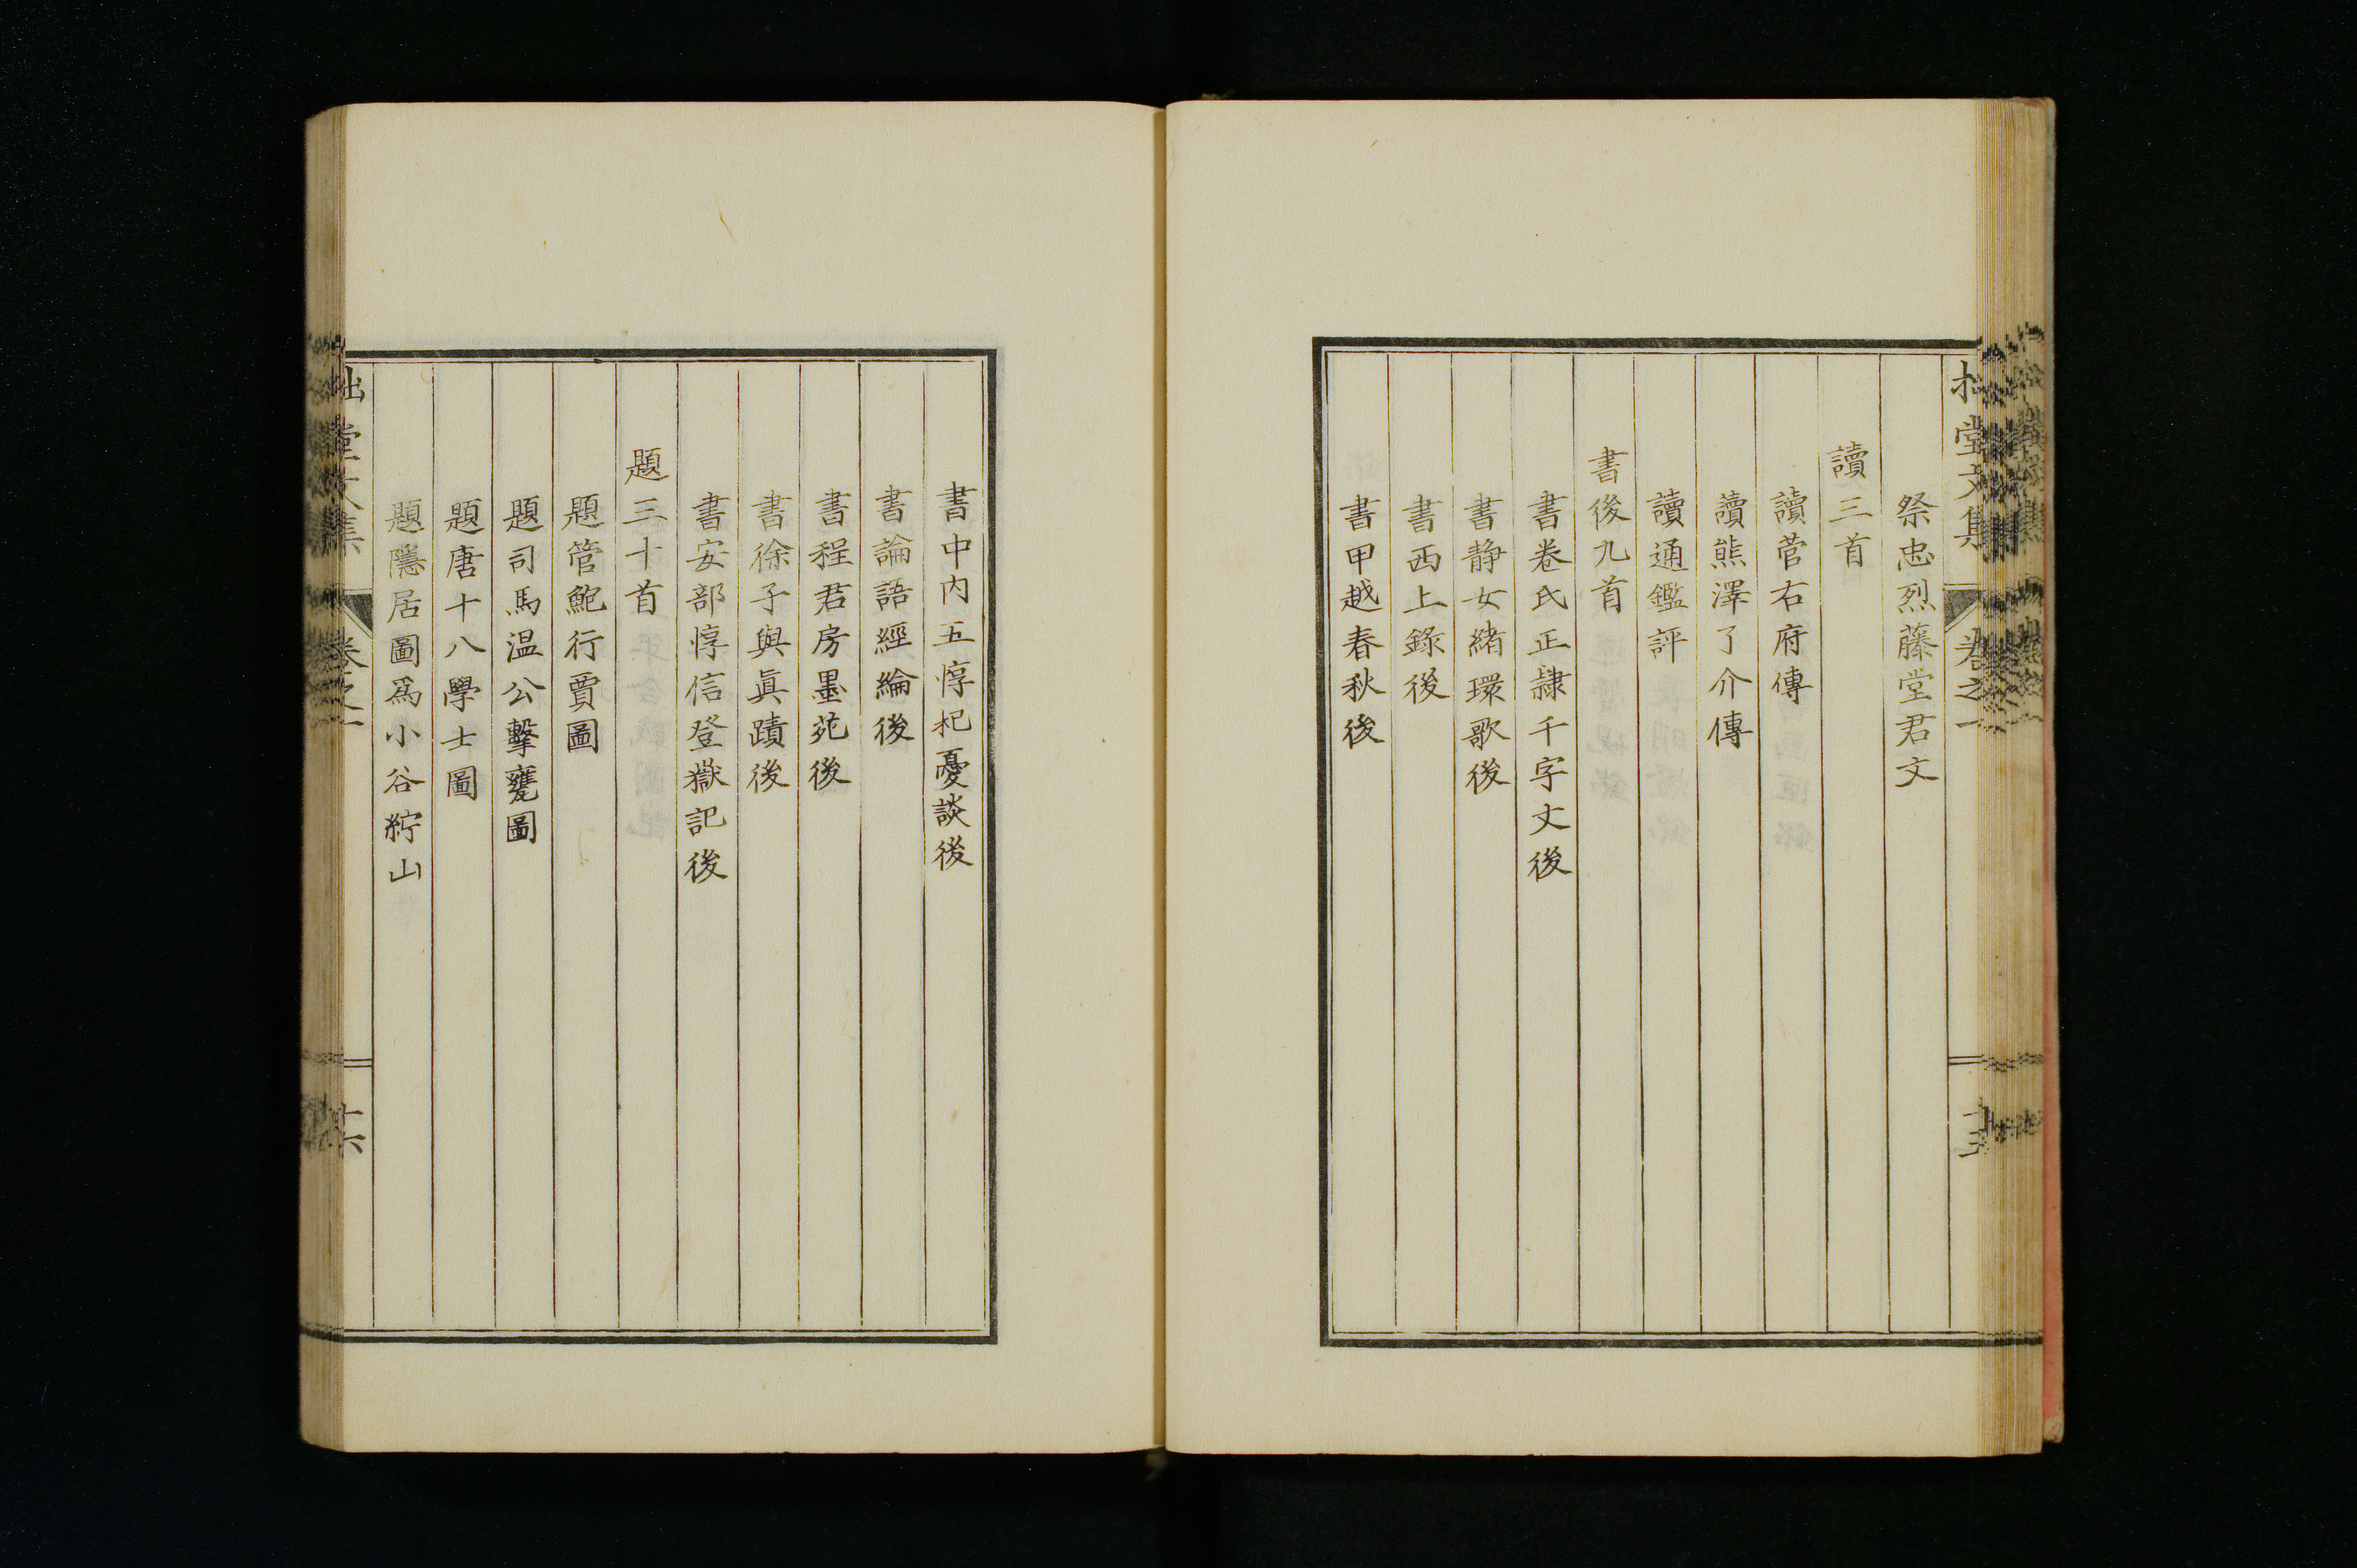 拙堂文集 卷之一
祭忠烈藤堂君文
讀三首
讀菅右府傳
讀熊澤了介傳
讀通鑑評
書後九首
書卷氏正隸千字文後
書靜女緒環歌後
書西上錄後
書甲越春秋後
書中內五惇杞憂談後
書論語經綸後
書程君房墨苑後
書徐子與眞蹟後
書安部惇信登嶽記後
題三十首
題管鮑行賈圖
題司馬溫公擊甕圖
題唐十八學士圖
題隱居圖爲小谷紵山
拙堂文集 卷之一 十六